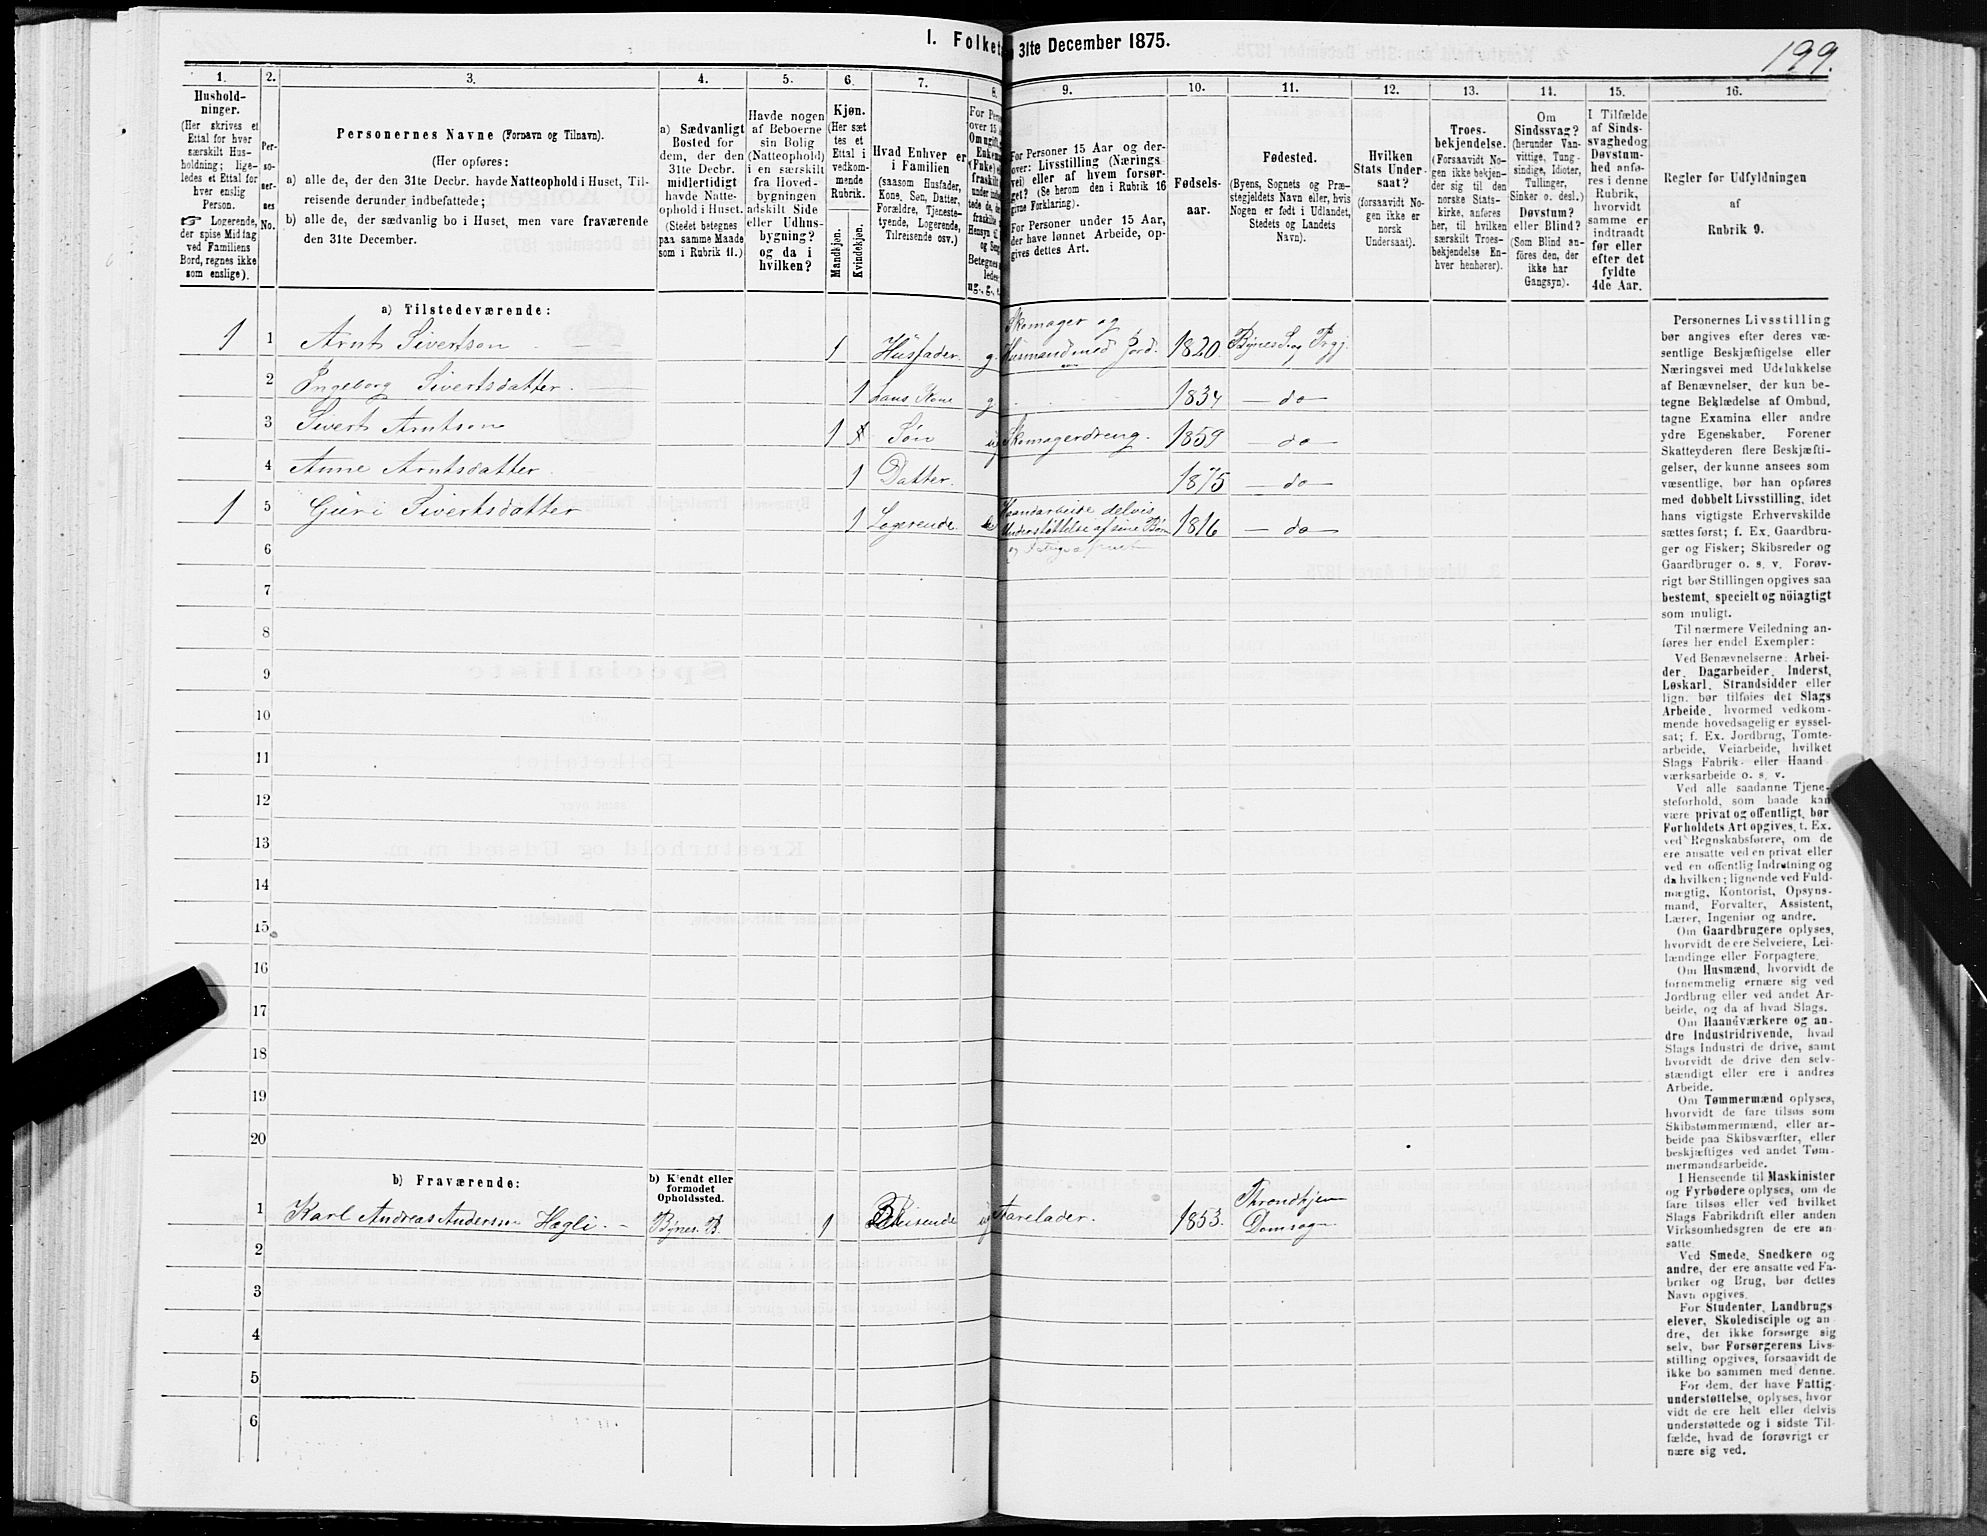 I. Folket 31te December 1875.
199.
1. 2. 3. 4. 5. 6. 7. 8. 9. 10. 11. 12. 13. 14. 15. 16.
Hushold-
ninger.
(Her skrives et
Ettal for hver
særskilt Hus-
holdning; lige-
ledes et Ettal for
hver enslig
Person.
☞ Logerende,
der spise Middag
ved Familiens
Bord, regnes ikke
som enslige).
Per-
so-
ner-
nes
No.
Personernes Navne (Fornavn og Tilnavn).
(Her opføres:
a) alle de, der den 31te Decbr. havde Natteophold i Huset, Til-
reisende derunder indbefattede;
b) alle de, der sædvanlig bo i Huset, men vare fraværende
den 31te December.
a) Sædvanligt
Bosted for
dem, der den
31te Decbr.
midlertidigt
havde Natte-
ophold i Huset.
(Stedet betegnes
paa samme Maade
som i Rubrik 11.)
Havde nogen
af Beboerne
sin Bolig
(Natteophold)
i en særskilt
fra Hoved-
bygningen
adskilt Side
eller Udhus-
bygning?
og da i
hvilken?
Kjøn.
(Her sæt
tes et
Ettal i
vedkom-
mende
Rubrik.
Mandkjøn.
Kvindekjøn.
Hvad Enhver er
i Familien
(saasom Husfader,
Kone, Søn, Datter,
Forældre, Tjeneste-
tyende, Logerende,
Tilreisende osv.)
For Pers
over 15
Om ugift,
Enkem
(Fnke)
fraskilt
under indbe
tede de, de
Hensyn t
og Seng
Betegnes
ledes
ug., g., e.
For Personer 15 Aar og der-
over: Livsstilling (Nærings
vei) eller af hvem forsør-
get? (Se herom den i Rubrik 16
givne Forklaring).
For Personer under 15 Aar,
der have lønnet Arbeide, op-
gives dettes Art.
Fødsels-
aar.
Fødested.
(Byens, Sognets og Præ-
stegjeldets Navn eller, hvis
Nogen er født i Udlandet,
Stedets og Landets
Navn).
Hvilken
Stats Under
saat?
(forsaavidt No-
gen ikke er
norsk
Undersaat).
Troes-
bekjendelse.
(Forsaavidt No-
gen ikke bekjen-
der sig til den
norske Stats-
kirke, anføres
her, til hvilken
særskilt Troes-
bekjendelse En-
hver henhører).
Om
Sindssvag?
(herunder Van-
vittige, Tung-
sindige, Idioter,
Tullinger,
Sinker o. desl.)
Døvstum?
eller Blind?
(Som Blind an-
føres den, der
ikke har
Gangsyn).
I Tilfælde
af Sinds-
svaghedog
Døvstum-
hed anfø-
res i denne
Rubrik,
hvorvidt
samme er
indtraadt
før eller
efter det
fyldte
4de Aar.
Regler for Udfyldningen
af
Rubrik 9.
a) Tilstedeværende:
1 1 Arnt Sivertsen 1 Husfader g. Skomager og
Husmand med Jord. 1820. Bynes Sog Prgj.
2 Ingeborg Sivertsdatter. 1 hans Kone g 1834 — do —
3 Sivert Arntsen 1 Søn ug Skomagerdreng. 1859 — do —
4 Anne Arntsdatter 1 Datter. 1875 — do —
1 5 Guri Sivertsdatter 1 Logerende Haandarbeide delvis
Understøttelse af sine Børn 1816 — do —
6
7
8
9
10
11
12
13
14
15
16
17
18
19
20
b) Fraværende:
b) Kjendt eller
formodet
Opholdssted.
1 Karl Andreas Andersen Hægli. Bynes. 1 ug 1853. Throndhjem
Domsogn
2
3
4
5
6
Personernes Livsstilling
bør angives efter deres væ-
sentlige Beskjæftigelse eller
Næringsvei med Udelukkelse
af Benævnelser, der kun be-
tegne Beklædelse af Ombud,
tagne Examina eller andre
ydre Egenskaber. Forener
Skatteyderen flere Beskjæfti-
gelser, der kunne ansees som
væsentlige, bør han opføres
med dobbelt Livsstilling, idet
hans vigtigste Erhvervskilde
sættes først; f. Ex. Gaardbru-
ger og Fisker; Skibsreder og
Gaardbruger o. s. v. Forøv-
rigt bør Stillingen opgives saa
bestemt, specielt og nöiagtigt
som muligt.
Til nærmere Veiledning an-
føres her endel Exempler:
Ved Benævnelserne: Arbei-
der, Dagarbeider, Inderst,
Løskarl, Strandsidder eller
lign. bør tilføies det Slags
Arbeide, hvormed vedkom-
mende hovedsagelig er syssel-
sat; f. Ex. Jordbrug, Tomte-
arbeide, Veiarbeide, hvilket
Slags Fabrik- eller Haand-
værksarbeide o. s. v.
Ved alle saadanne Tjene-
steforhold, som baade kan
være privat og offentligt, bør
Forholdets Art opgives, t. Ex.
ved Regnskabsførere, om de
ere ansatte ved en privat eller
ved en offentlig Indretning og
da hvilken; lignende ved Fuld-
mægtig, Kontorist, Opsyns-
mand, Forvalter, Assistent,
Lærer, Ingeniør og andre.
Om Gaardbrugere oplyses,
hvorvidt de ere Selveiere, Lei-
lændinge eller Forpagtere.
Om Husmænd, hvorvidt de
fornemmelig ernære sig ved
Jordbrug eller ved andet Ar-
beide, og da af hvad Slags.
Om Haandværkere og an-
dre Industridrivende, hvad
Slags Industri de drive, samt
hvorvidt de drive den selv-
stændigt eller ere i andres
Arbeide.
Om Tømmermænd oplyses,
hvorvidt de fare tilsøs som
Skibstømmermænd, eller ar-
beide paa Skibsværfter, eller
beskjæftiges ved andet Tøm-
mermandsarbeide.
I Henseende til Maskinister
og Fyrbødere oplyses, om de
fare tilsøs eller ved hvilket
Slags Fabrikdrift eller anden
Virksomhedsgren de ere an-
satte
Ved Smede, Snedkere og
andre, der ere ansatte ved Fa-
briker og Brug, bør dettes
Navn opgives.
For Studenter, Landbrugs
elever, Skoledisciple og an
dre, der ikke forsørge sig
selv, bør Forsørgerens Livs-
stilling opgives, forsaavidt de
ikke bo sammen med denne.
For dem, der have Fattig
understøttelse, oplyses, hvor
vidt de ere helt eller delvis
understøttede og i sidste Til-
fælde, hvad de forøvrigt er
nære sig ved.